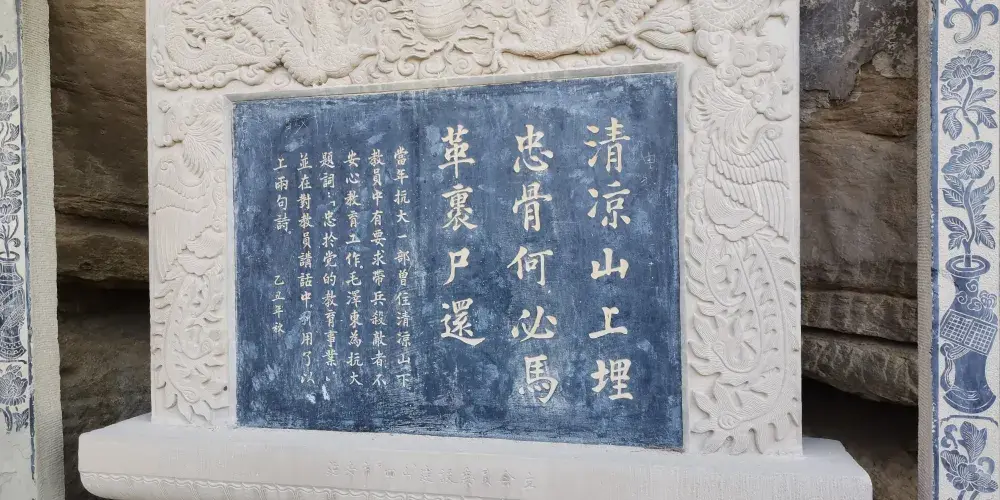 清凉山上埋
忠骨何必馬
革裹尸還
當年抗大一部曾住清凉山下
教員中有要求帶兵殺敵者不
安心教育工作毛澤東為抗大
題詞:“忠於党的教育事業”
並在對教員講話中引用了以
上兩句詩.
乙丑年秋